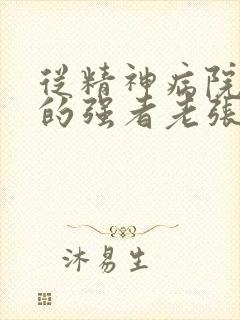 從精神病院
的强者老張
沐易生